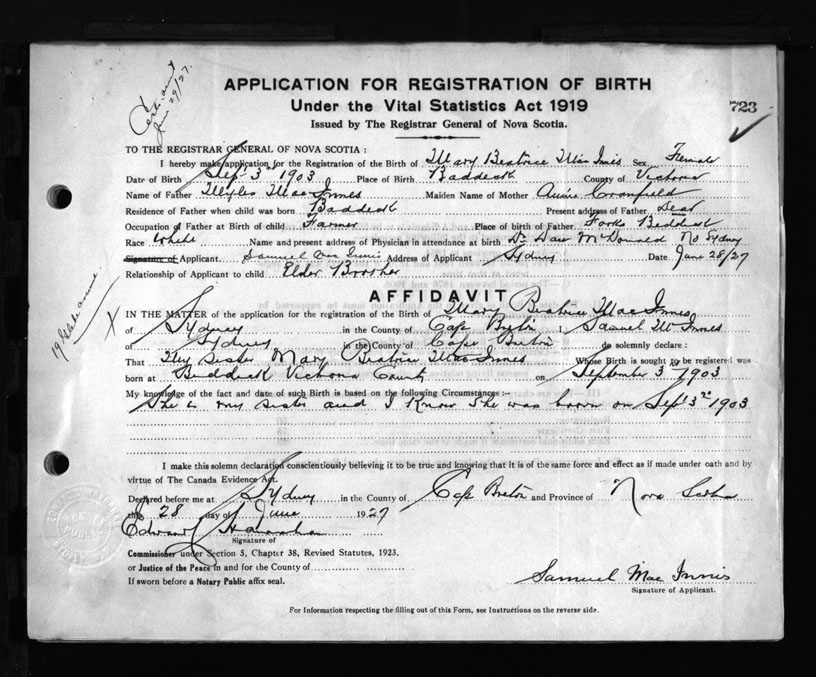 Cert. sent
June 29/27.
APPLICATION FOR REGISTRATION OF BIRTH
Under the Vital Statistics Act 1919
723
Issued by The Registrar General of Nova Scotia.
TO THE REGISTRAR GENERAL OF NOVA SCOTIA :
I hereby make application for the Registration of the Birth of Mary Beatrice Mac Innis Sex Female
Date of Birth Sept 3rd 1903 Place of Birth Baddeck County of Victoria
Name of Father Myles Mac Innes Maiden Name of Mother Annie Cranfield
Residence of Father when child was born Baddeck Present address of Father Dead
Occupation of Father at Birth of child Farmer Place of birth of Father Forks Baddeck
Race White Name and present address of Physician in attendance at birth Dr Dan McDonald No Sydney
Signature of Applicant. Samuel Mac Innis Address of Applicant Sydney Date June 28/27
Relationship of Applicant to child Elder Brother
AFFIDAVIT
IN THE MATTER of the application for the registration of the Birth of Mary Beatrice Mac Innes
of Sydney in the County of Cape Breton I, Samuel Mc Innes
of Sydney in the County of Cape Breton do solemnly declare :
That My Sister Mary Beatrice MacInnes Whose Birth is sought to be registered was
born at Baddeck Victoria County on September 3 1903
My knowledge of the fact and date of such Birth is based on the following Circumstances :-
She is my sister and I know she was born on Sept 3rd 1903
I make this solemn declaration conscientiously believing it to be true and knowing that it is of the same force and effect as if made under oath and by
virtue of The Canada Evidence Act.
Declared before me at Sydney in the County of Cape Breton and Province of Nova Scotia
this 28 day of June 1927
Edward Hanrahan
Signature of
Commissioner under Section 5, Chapter 38, Revised Statutes, 1923.
or Justice of the Peace in and for the County of
If sworn before a Notary Public affix seal.
Samuel Mac Innis
Signature of Applicant.
For Information respecting the filling out of this Form, see Instructions on the reverse side.